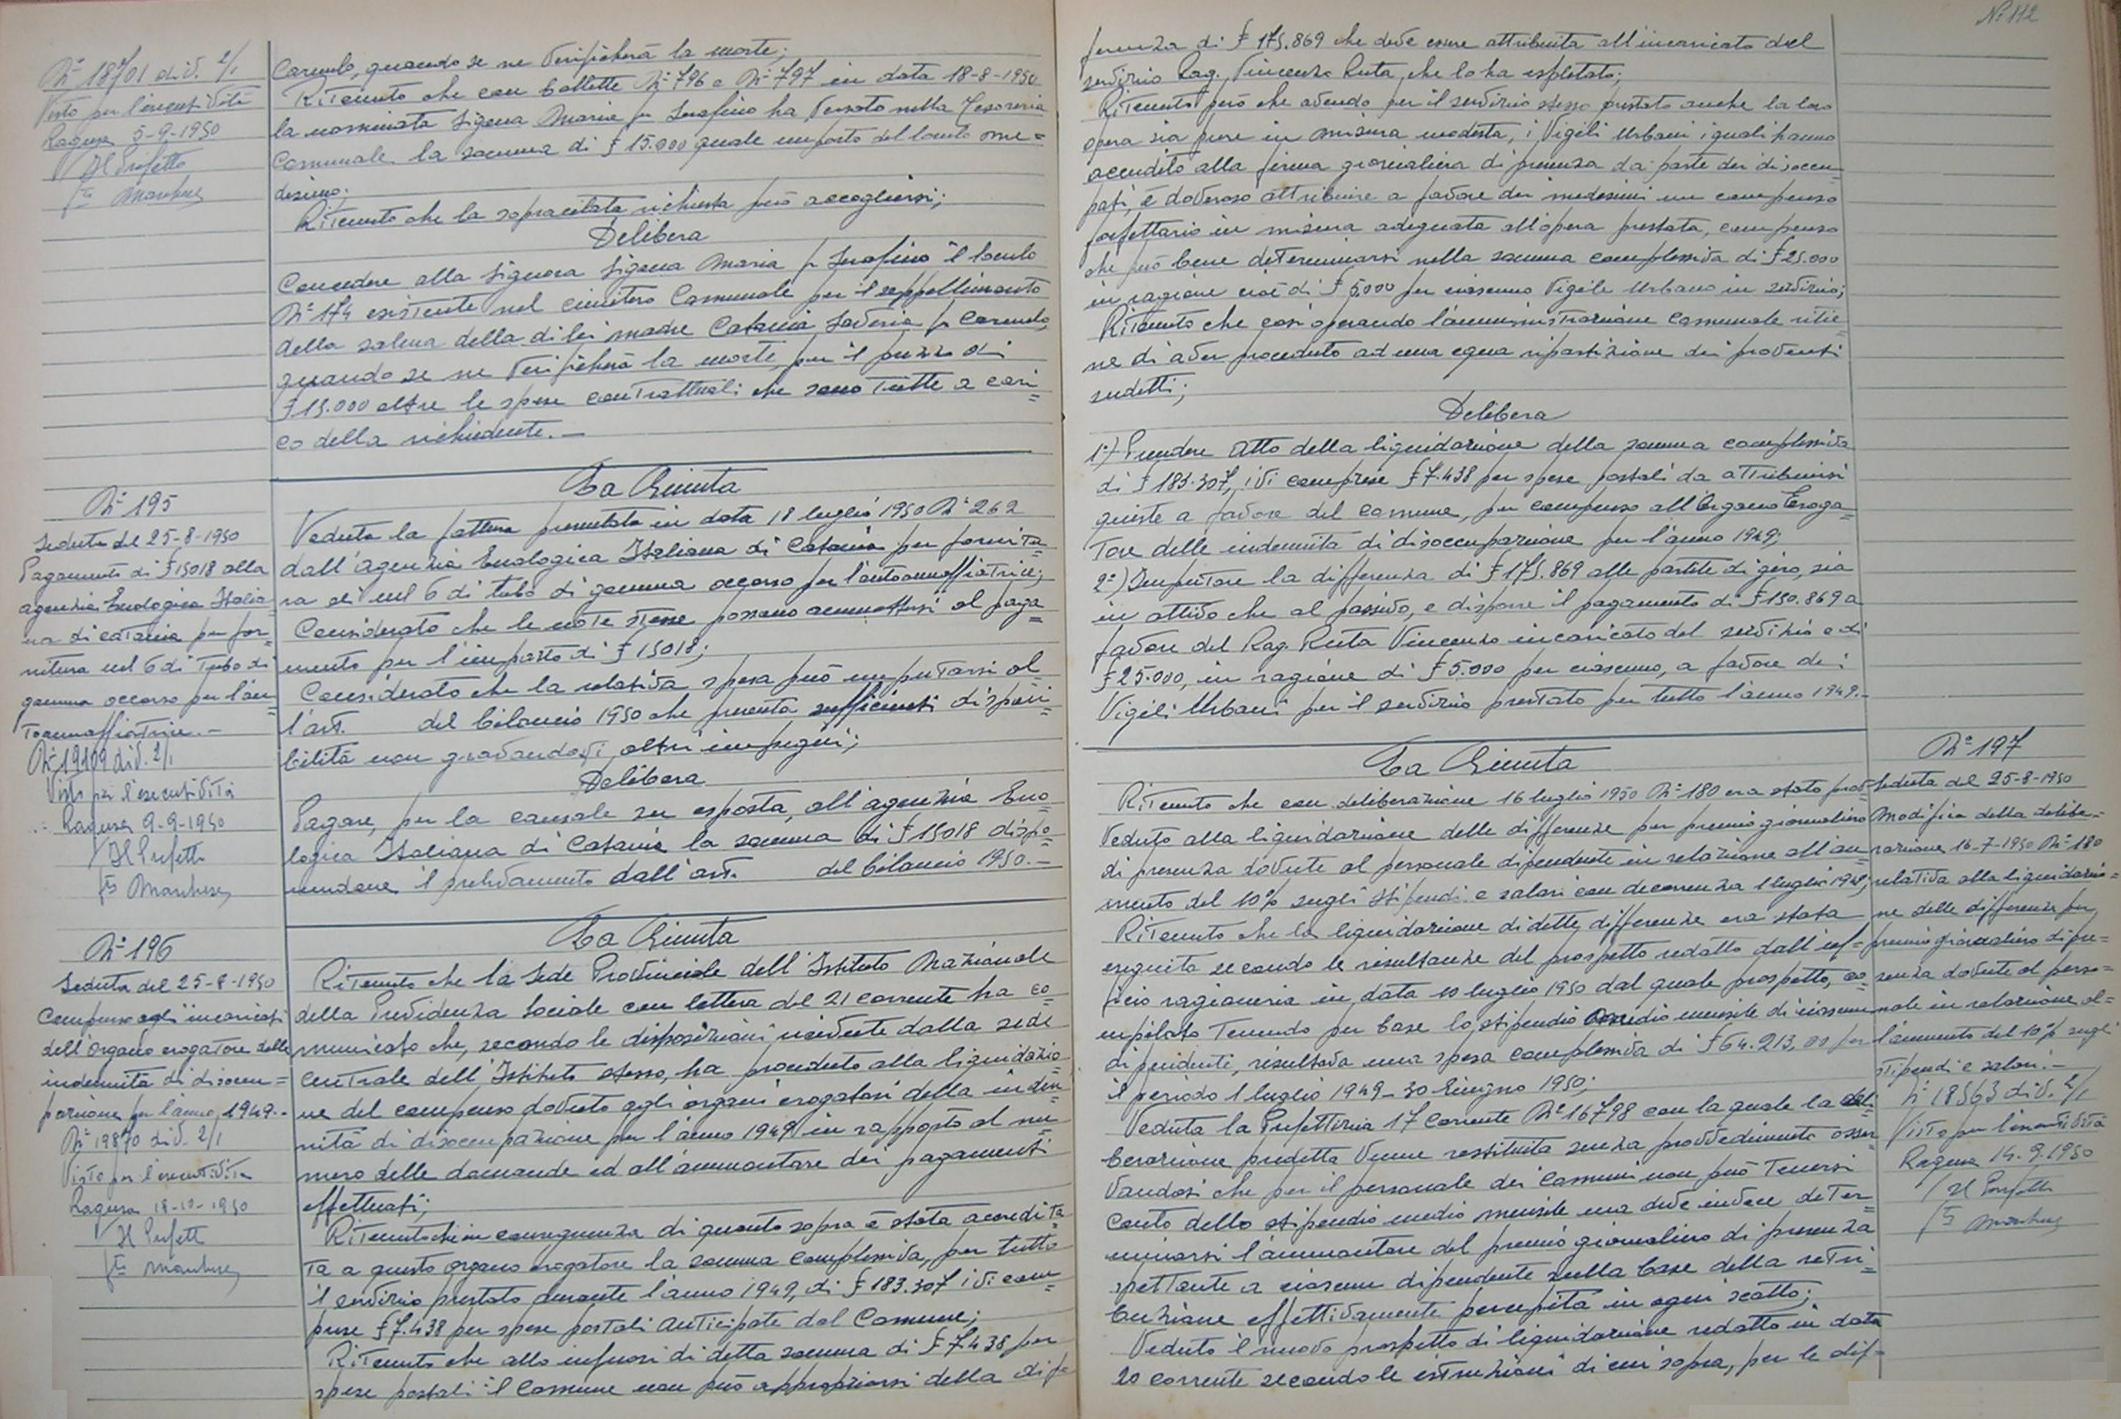 Nº 18701 div. 2/1
Visto per l'esecutività
Ragusa 5-9-1950
Il Prefetto
Fto
Carmelo, quando se ne verificherà la morte;
Ritenuto che con bollette Nº 796 e Nº 797 in data 18-8-1950
la nominata Sigona Maria fu Serafino ha versato nella Tesoreria
Comunale la somma di £ 15.000 quale importo del loculo me=
desimo;
Ritenuto che la sopracitata richiesta può accogliersi;
Delibera
Concedere alla Signora Sigona Maria fu Serafino il loculo
Nº 174 esistente nel cimitero Comunale per il seppellimento
della salma della di lei madre Catania Saveria fu Carmelo,
quando se ne verificherà la morte, per il prezzo di
£ 15.000 oltre le spese contrattuali che sono tutte a cari=
co della richiedente.—
Nº 195
Seduta del 25-8-1950
Pagamento di £ 15018 alla
agenzia Enologica Italia=
na di Catania per for=
nitura ml 6 di tubo di
gomma occorso per l'au=
toannaffiatrice.—
Nº 19109 div. 2/1
Visto per l'esecutività
Ragusa 9-9-1950
Il Prefetto
Fto
La Giunta
Veduta la fattura presentata in data 18 luglio 1950 Nº 262
dall'agenzia Enologica Italiana di Catania per fornitu=
ra di ml 6 di tubo di gomma occorso per l'autoannaffiatrice;
Considerato che le note stesse possono ammettersi al paga=
mento per l'importo di £ 15018;
Considerato che la relativa spesa può imputarsi al=
l'art. del bilancio 1950 che presenta sufficienti disponi=
bilità non gravandovi altri impegni;
Delibera
Pagare, per la causale su esposta, all'agenzia Eno=
logica Italiana di Catania la somma di £ 15018 dispo=
nendone il prelevamento dall'art. del bilancio 1950.—
Nº 196
Seduta del 25-8-1950
Compenso agli incaricati
dell'organo erogatore delle
indennità di disoccu=
pazione per l'anno 1949.-
Nº 19870 div. 2/1
Visto per l'esecutività
Ragusa 18-10-1950
Il Prefetto
Fto
La Giunta
Ritenuto che la Sede Provinciale dell'Istituto Nazionale
della Previdenza Sociale con lettera del 21 corrente ha co=
municato che, secondo le disposizioni ricevute dalla sede
centrale dell'Istituto stesso, ha proceduto alla liquidazio=
ne del compenso dovuto agli organi erogatori della inden=
nità di disoccupazione per l'anno 1949 in rapporto al nu=
mero delle domande ed all'ammontare dei pagamenti
effettuati;
Ritenuto che in conseguenza di quanto sopra è stata accredita=
ta a questo organo erogatore la somma complessiva, per tutto
il servizio prestato durante l'anno 1949, di £ 183.307 ivi com=
prese £ 7.438 per spese postali anticipate dal Comune;
Ritenuto che allo infuori di detta somma di £ 7.438 per
spese postali il Comune non può appropriarsi della dif=
Nº 112
ferenza di £ 175.869 che deve essere attribuita all'incaricato del
servizio Rag. Vincenzo Ruta, che lo ha espletato;
Ritenuto però che avendo per il servizio stesso prestato anche la loro
opera sia pure in misura modesta, i Vigili Urbani i quali hanno
accudito alla firma giornaliera di presenza da parte dei disoccu=
pati, è doveroso attribuire a favore dei medesimi un compenso
forfettario in misura adeguata all'opera prestata, compenso
che può bene determinarsi nella somma complessiva di £ 25.000
in ragione cioè di £ 5.000 per ciascuno Vigile Urbano in servizio;
Ritenuto che così operando l'amministrazione comunale ritie=
ne di aver proceduto ad una equa ripartizione dei proventi
sudetti;
Delibera
1º) Prendere atto della liquidazione della somma complessiva
di £ 183.307, ivi comprese £ 7.438 per spese postali da attribuirsi
queste a favore del Comune, per compenso all'Organo Eroga=
tore delle indennità di disoccupazione per l'anno 1949;
2º) Imputare la differenza di £ 175.869 alle partite di giro, sia
in attivo che al passivo, e disporre il pagamento di £ 150.869 a
favore del Rag. Ruta Vincenzo incaricato del servizio e di
£ 25.000, in ragione di £ 5.000 per ciascuno, a favore dei
Vigili Urbani per il servizio prestato per tutto l'anno 1949.-
La Giunta
Ritenuto che con deliberazione 16 luglio 1950 Nº 180 era stato prov=
veduto alla liquidazione delle differenze per premio giornaliero
di presenza dovute al personale dipendente in relazione all'au=
mento del 10% sugli stipendi e salari con decorrenza 1 luglio 1949;
Ritenuto che la liquidazione di dette differenze era stata
eseguita secondo le risultanze del prospetto redatto dall'uf=
ficio ragioneria in data 10 luglio 1950 dal quale prospetto, co=
mpilato tenendo per base lo stipendio medio mensile di ciascun
dipendente, risultava una spesa complessiva di £ 64.213,00 per
il periodo 1 luglio 1949 - 30 Giugno 1950;
Veduta la Prefettizia 17 corrente Nº 16798 con la quale la deli=
berazione predetta venne restituita senza provvedimento osser=
vandosi che per il personale dei Comuni non può tenersi
conto dello stipendio medio mensile ma deve invece deter=
minarsi l'ammontare del premio giornaliero di presenza
spettante a ciascun dipendente sulla base della retri=
buzione effettivamente percepita in ogni scatto;
Veduto il nuovo prospetto di liquidazione redatto in data
20 corrente secondo le istruzioni di cui sopra, per le dif=
Nº 197
Seduta del 25-8-1950
Modifica della delibe=
razione 16-7-1950 Nº 180
relativa alla liquidazio=
ne delle differenze per
premio giornaliero di pre=
senza dovute al perso=
nale in relazione al=
l'aumento del 10% sugli
stipendi e salari.—
Nº 18563 div. 2/1
Visto per l'esecutività
Ragusa 14.9.1950
Il Prefetto
Fto